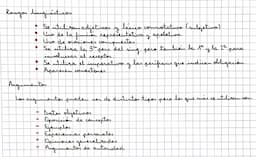 Rasgos lingüísticos
• Se utilizan adjetivos y léxico connotativo (subjetivo)
• Uso de la función representativa y apelativa
• Uso de oraciones compuestas
• Se utiliza la 3ª pers del sing. pero también la 1ª y la 2ª para
involucrar al receptor
• Se utiliza el imperativo y las perífrasis que indican obligación
Aparecen conectores
Argumentos
Los argumentos pueden ser de distintos tipos para los que más se utilizan son
• Datos objetivos
• Exposición de conceptos
• Ejemplos
• Experiencias personales
• Opiniones generalizadas
• Argumentos de autoridad